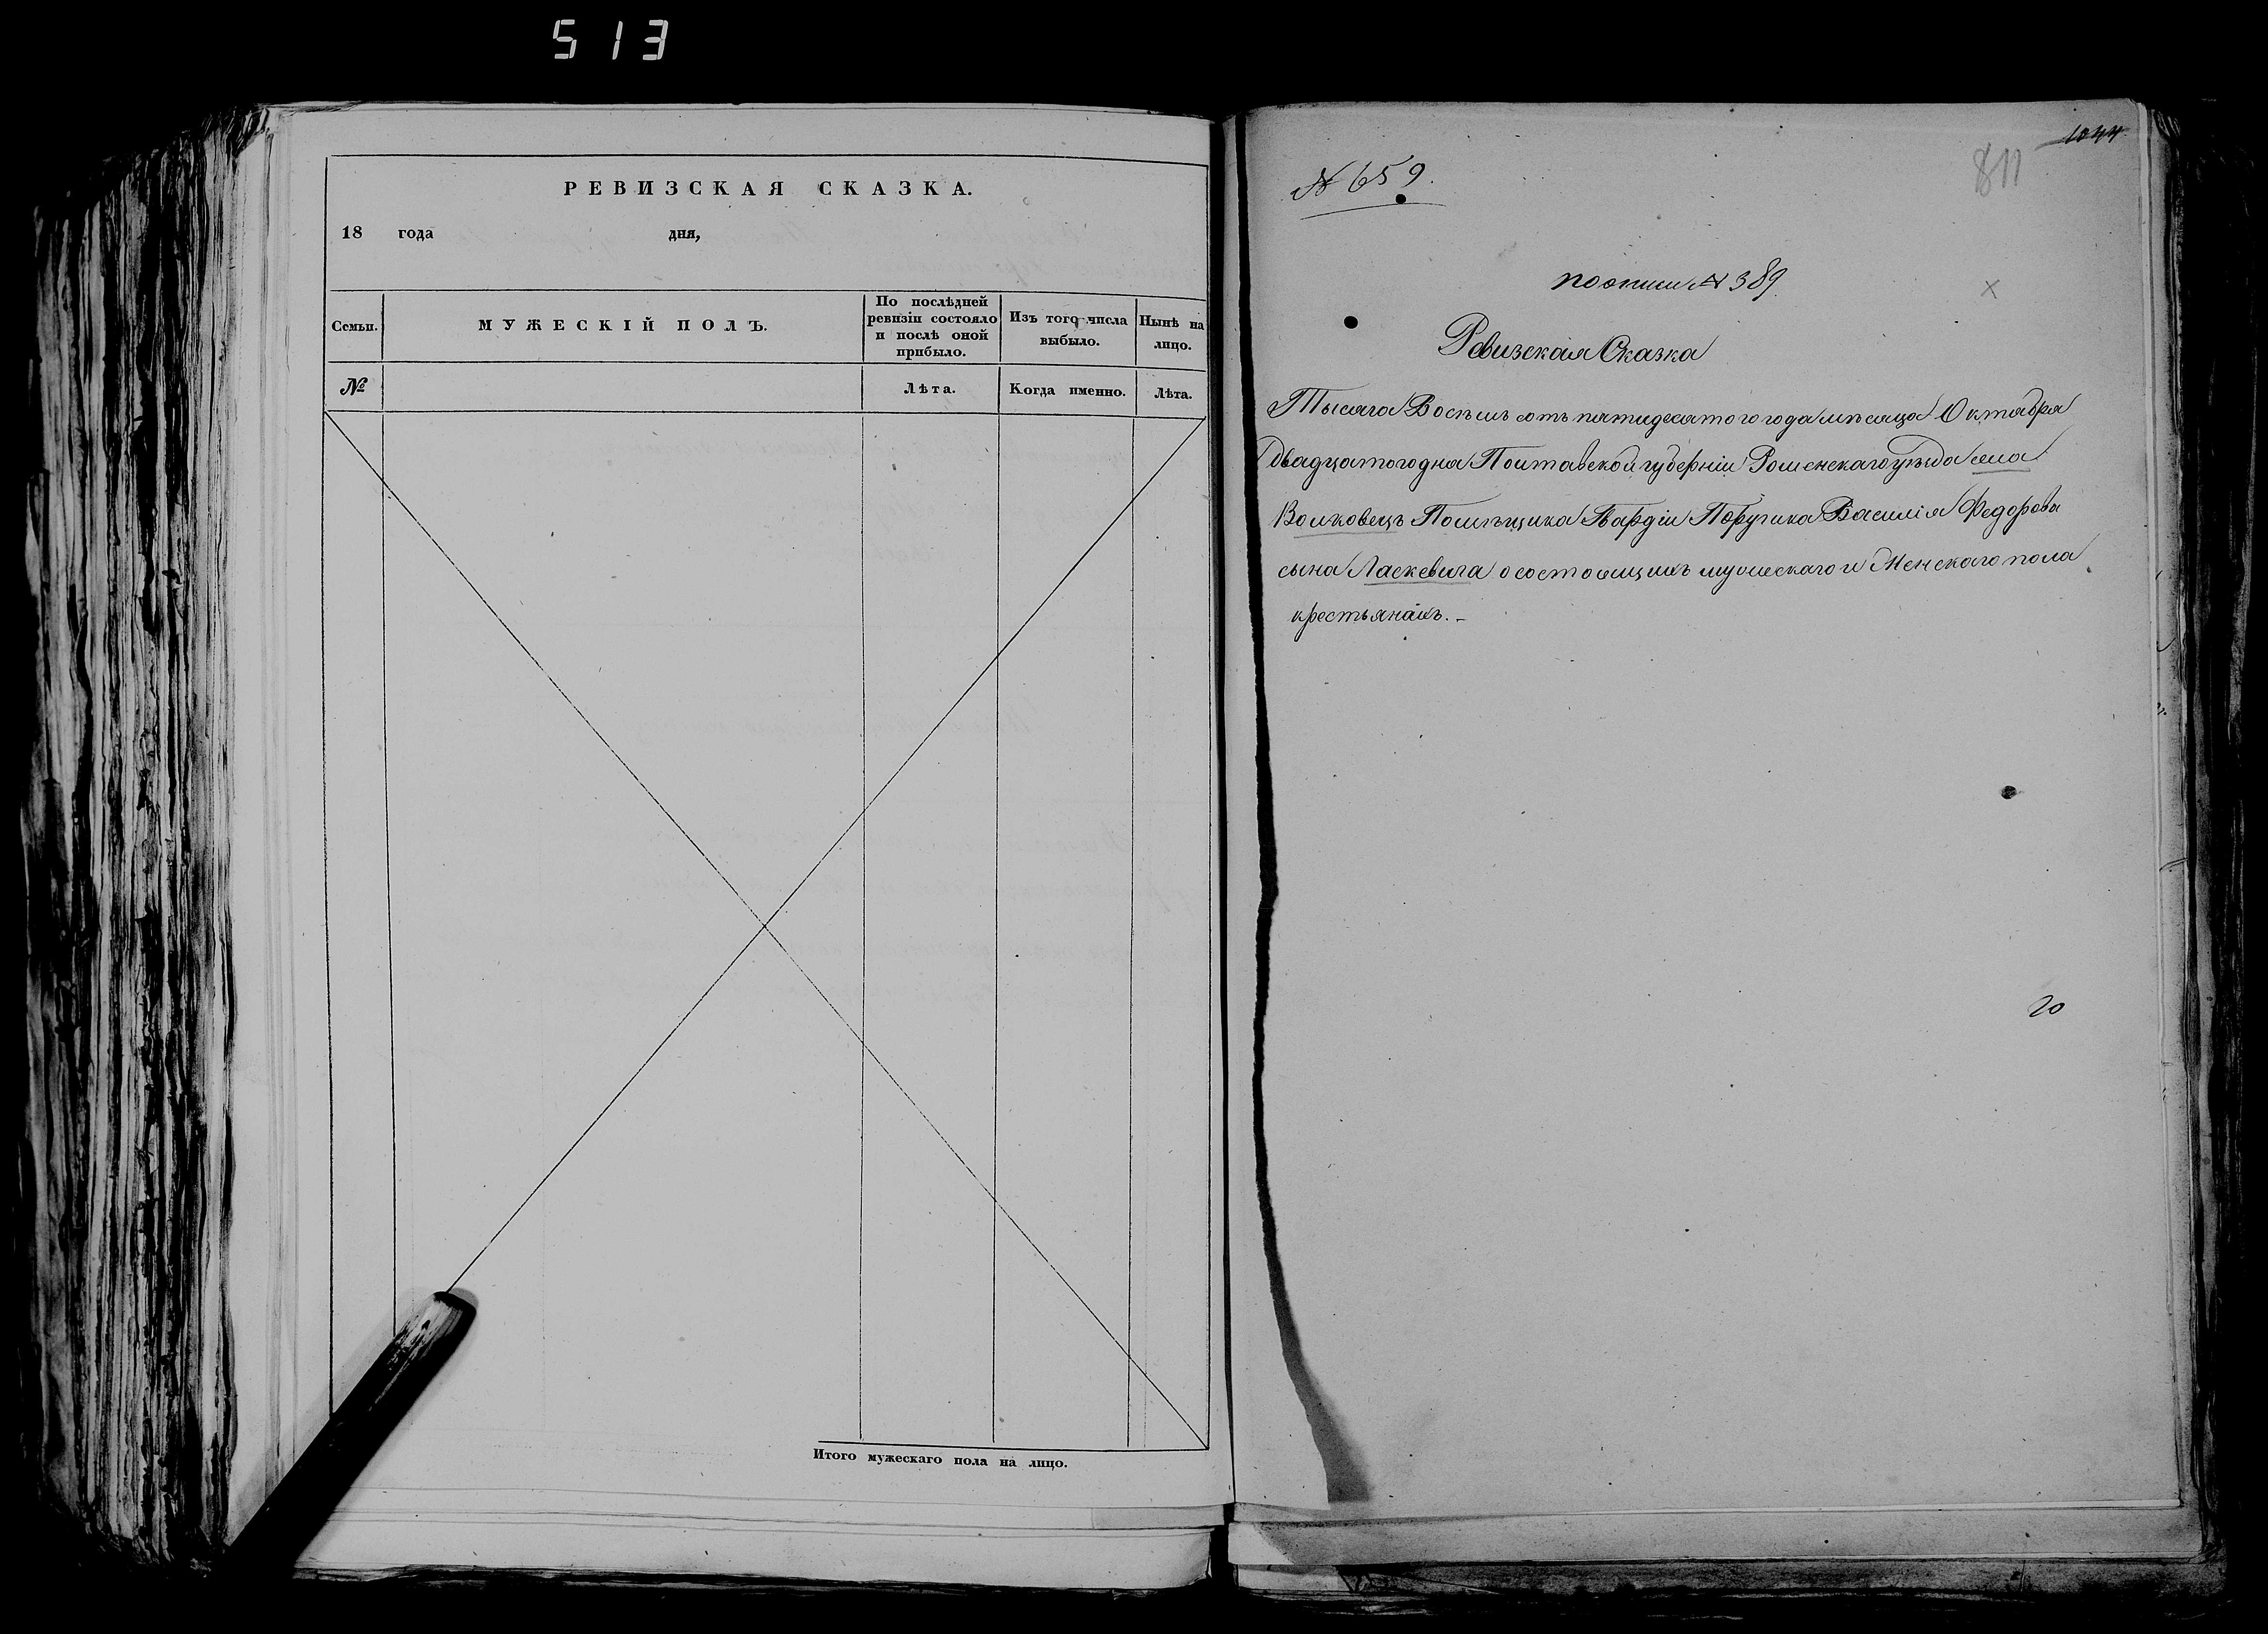 513
РЕВИЗСКАЯ СКАЗКА.
18 года дня,
Семьи.
МУЖЕСКІЙ ПОЛЪ.
По послѣдней
ревизіи состояло
и послѣ оной
прибыло.
Изъ того числа
выбыло.
Нынѣ на
лицо.
№
Лѣта.
Когда именно.
Лѣта.
Итого мужескаго пола на лицо.
1044
811
№ 659.
по описи № 389.
Ревизская Сказка
Тысяча Восемь сотъ пятидесятого года мѣсяца Октября
двадцатого дня Полтавской губерніи Роменскаго уѣзда села
Волковецъ Помѣщика Гвардіи Поручика Василія Федорова
сына Ласкевича о состоящихъ мужескаго и Женскаго пола
крестьянахъ. –
20